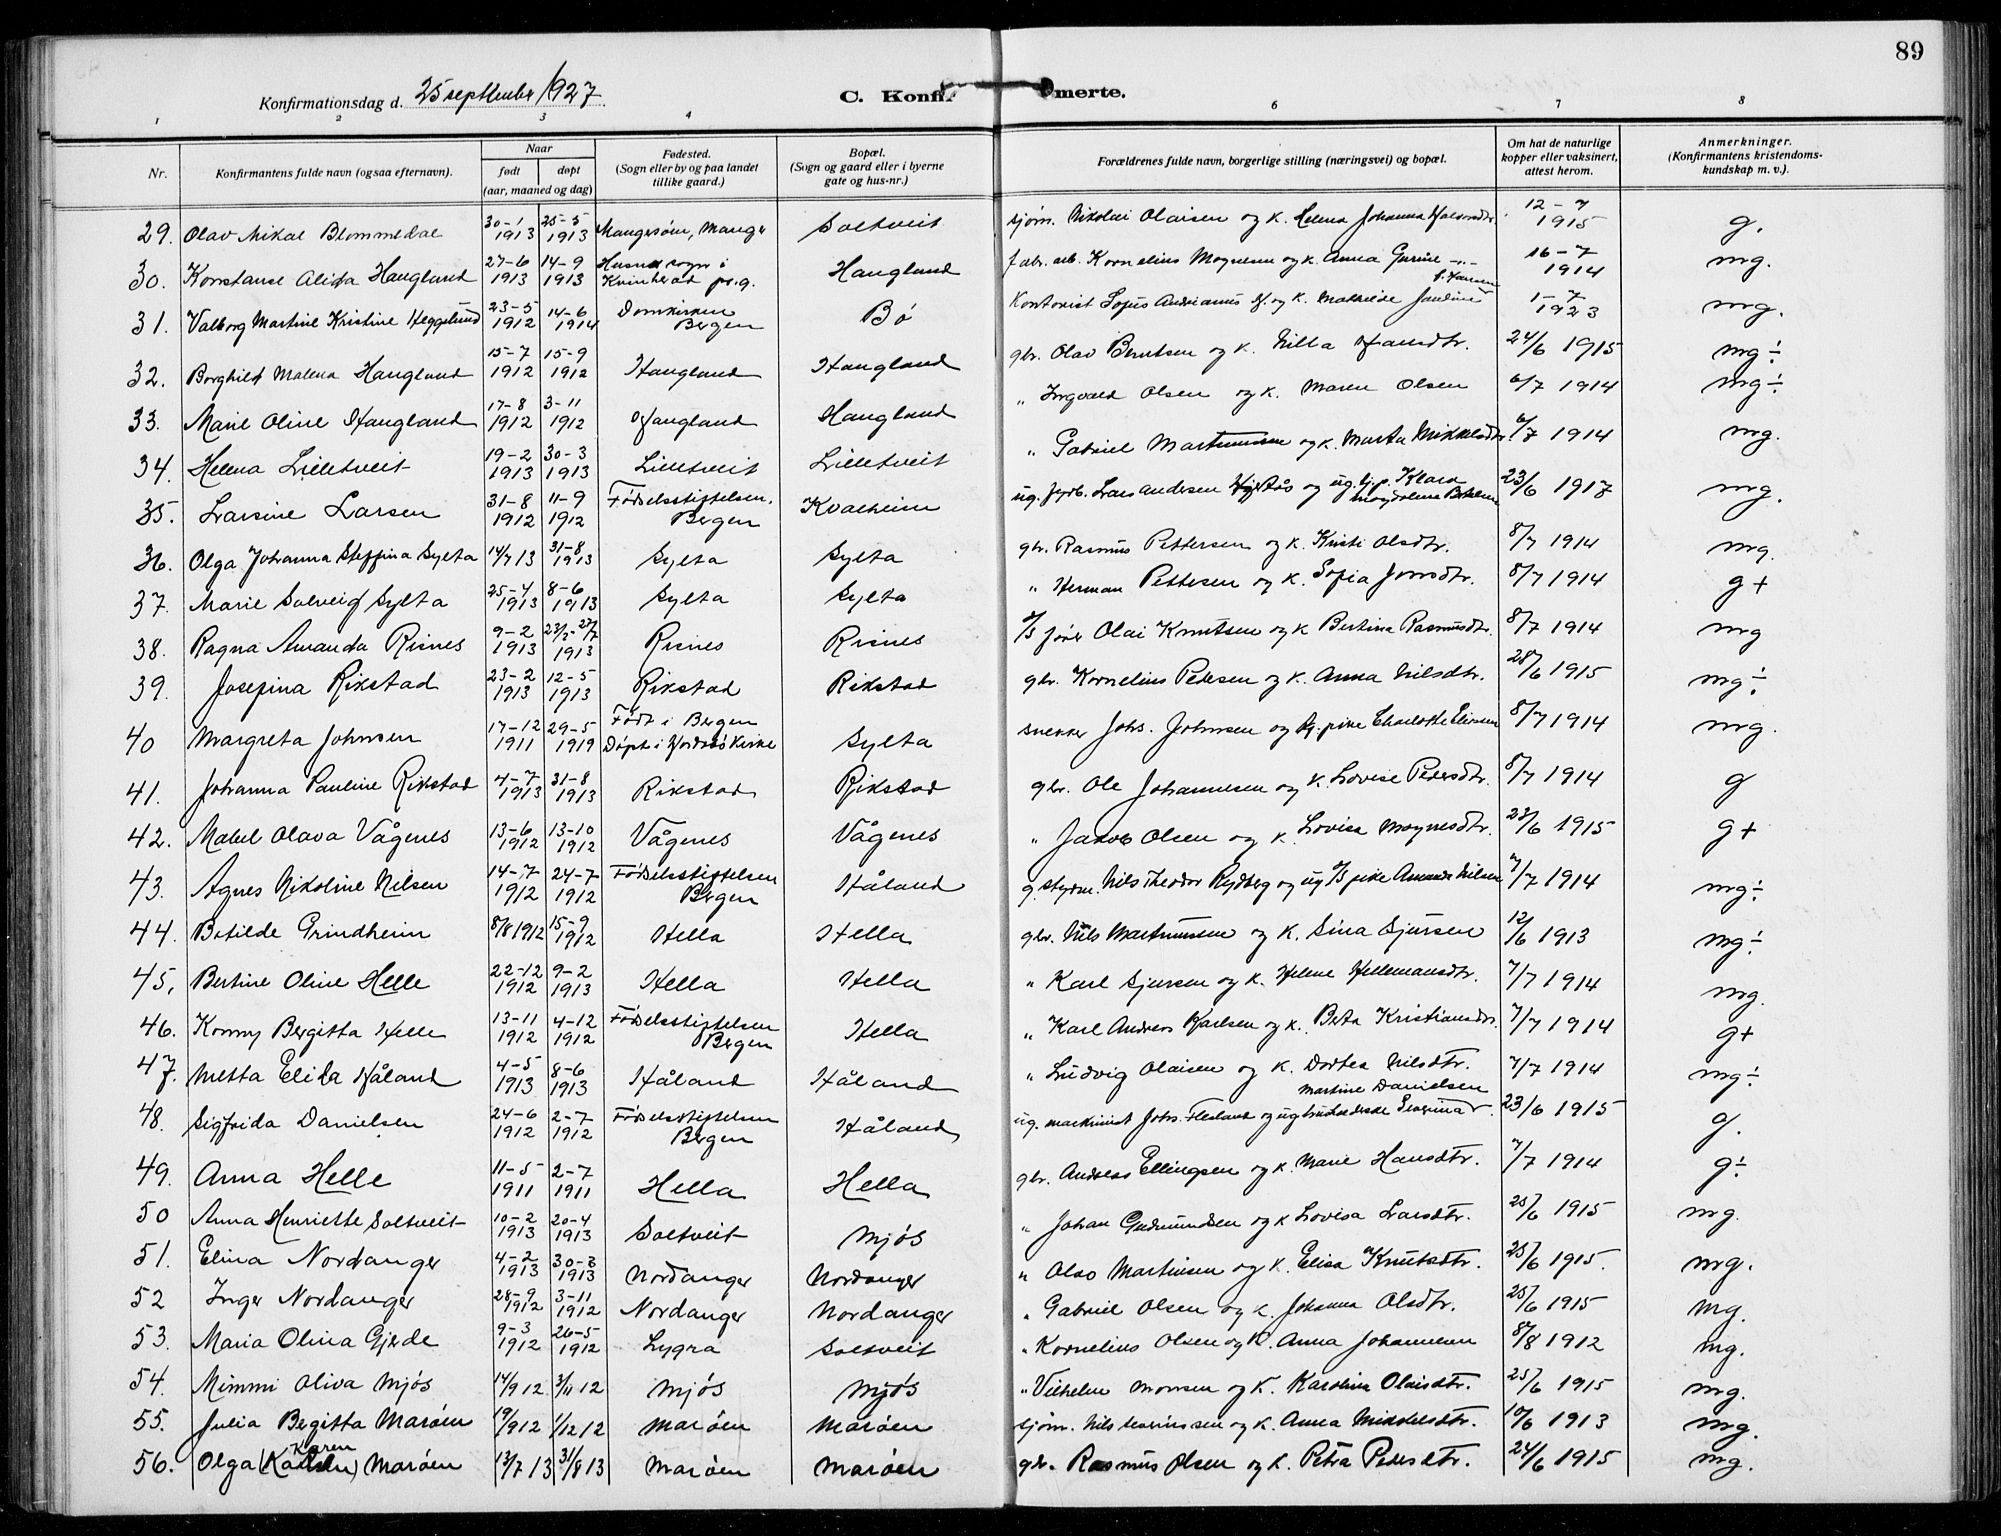 89
Konfirmationsdag d. 25 september 1927
C. Konfir merte.
1 2 3 4 5 6 7 8
Nr. Konfirmantens fulde navn (ogsaa efternavn). Naar født døpt (aar, maaned og dag) Fødested. (Sogn eller by og paa landet tillike gaard.) Bopæl. (Sogn og gaard eller i byerne gate og hus-nr.) Forældrenes fulde navn, borgerlige stilling (næringsvei) og bopæl. Om hat de naturlige kopper eller vaksinert, attest herom. Anmerkninger. (Konfirmantens kristendoms-kundskap m. v.).
29. Olav Mikal Blommedal 30-1 1913 25-5 1913 Mangersöen, Manger Soltveit sjøm. Nikolai Olaisen og k. Helena Johanna 12-7 1915 g.
30. Konstanse Alida Haugland 27-6 1913 14-9 1913 Husnes sogn i Kvinherad pr.g. Haugland fabr. arb. Kornelius Mognesen og k. Anna Gurine 16-7 1914 mg.
31. Valborg Martine Kristine Heggelund 23-5 1912 14-6 1914 Domkirken Bergen Bö Kontorist Sofus Andrianus H. og k. Mathilde Janine f. Hansen 1-7 1923 mg.
32. Borghild Malena Haugland 15-7 1912 15-9 1912 Haugland Haugland gbr. Olav Berntsen og k. Nilla Hansdtr. 24/6 1915 mg÷
33. Marie Oline Haugland 17-8 1912 3-11 1912 Haugland Haugland " Ingvald Olsen og k. Maren Olsen 6/7 1914 mg÷
34. Helena Lilletveit 19-2 1913 30-3 1913 Lilletveit Lilletveit " Gabriel Martinussen og k. Marta Mikkelsdtr. 6/7 1914 mg.
35. Larsine Larsen 31-8 1912 11-9 1912 Fødselsstiftelsen, Bergen Kvalheim ug. fyrb. Lars Andersen og ug. tj.p. Klara Magdalena 23/6 1917 mg.
36. Olga Johanna Steffina Sylta 14/7 13 31-8 1913 Sylta Sylta gbr. Rasmus Pettersen og k. Kristi Olsdtr. 8/7 1914 mg.
37. Marie Solveig Sylta 25-4 1913 8-6 1913 Sylta Sylta " Herman Pettesen og k. Sofia Jonsdtr. 8/7 1914 g+
38. Ragna Amanda Risnes 9-2 1913 23/2-27/7 1913 Risnes Risnes d/s fører Olai Knutsen og k Bertina Rasmusdtr. 8/7 1914 mg
39. Josefina Rikstad 23-2 1913 12-5 1913 Rikstad Rikstad gbr. Kornelius Pedersen og k. Anna Nilsdtr. 28/6 1915 mg÷
40 Margreta Johnsen 17-12 1911 29-5 1919 Født i Bergen Døpt i Hordabö Kirke Sylta snekker Johs. Johnsen og pike Charlotte 8/7 1914 mg.
41. Johanna Pauline Rikstad 4-7 1913 31-8 1913 Rikstad Rikstad gbr. Ole Johannesen og k. Lovise Pedersdtr. 8/7 1914 g
42. Mabel Olava Vågenes 13-6 1912 13-10 1912 Vågenes Vågenes " Jakob Olsen og k. Lovisa Mognesdtr. 23/6 1915 g+
43. Agnes Nikoline Nilsen 14-7 1912 24-7 1912 Fødselsstiftelsen Bergen Håland g. styrm. Nils Theodor Rydberg og ug pike Amanda Nilsen 7/7 1914 mg÷
44. Betilde Grindheim 8/8 1912 15-9 1912 Hella Hella gbr. Nils Martinussen og k. Sina Sjursen 12/6 1913 mg÷
45. Bertine Oline Helle 22-12 1912 9-2 1913 Hella Hella " Karl Sjursen og k. Helene Hellemansdtr. 7/7 1914 mg.
46. Konny Bergitta Helle 13-11 1912 4-12 1912 Fødselsstiftelsen Bergen Hella " Karl Andreas Karlsen og k. Berta Kristiansdtr. 7/7 1914 g+
47. Metta Elida Håland 4-5 1913 8-6 1913 Håland Håland " Ludvig Olaisen og k. Dortea Nilsdtr. 7/7 1914 mg÷
48. Sigfrida Danielsen 24-6 1912 2-7 1912 Fødselsstiftelsen Bergen Håland ug. maskinist Johs. Flesland og ug Severina Martine Danielsen 23/6 1915 g.
49. Anna Helle 11-5 1911 2-7 1911 Hella Hella gbr. Andreas Ellingsen og k. Marie Hansdtr. 7/7 1914 g÷
50 Anna Henriette Soltveit 10-2 1913 20-4 1913 Soltveit Mjös " Johan Gudmundsen og k Lovisa Larsdtr. 25/6 1915 mg.
51. Elina Nordanger 4-2 1913 30-3 1913 Nordanger Nordanger " Olav Martinsen og k. Elisa Knutsdtr. 25/6 1915. mg.
52 Inger Nordanger 28-9 1912 3-11 1912 Nordanger Nordanger " Gabriel Olsen og k. Johanna Olsdtr. 25/6 1915 mg.
53. Maria Olina Gjerde 9-3 1912 26-5 1912 Lygra Soltveit " Kornelius Olsen og k. Anna Johannesen 8/8 1912 mg.
54. Mimmi Oliva Mjös 14/9 12 3/11 12 Mjös Mjös " Vilhelm Monsen og k. Karolina Olaisdtr. 25/6 1915 mg.
55. Julia Bergitta Maröen 19/9 12 1/12 12 Maröen Maröen sjøm. Nils og k. Anna Mikkelsdtr. 10/6 1913 mg.
56. Olga (Karen) Maröen 13/7 13 31/8 13 Maröen Maröen gbr. Rasmus Olsen og k. Petra Pedersdtr. 24/6 1915 mg.